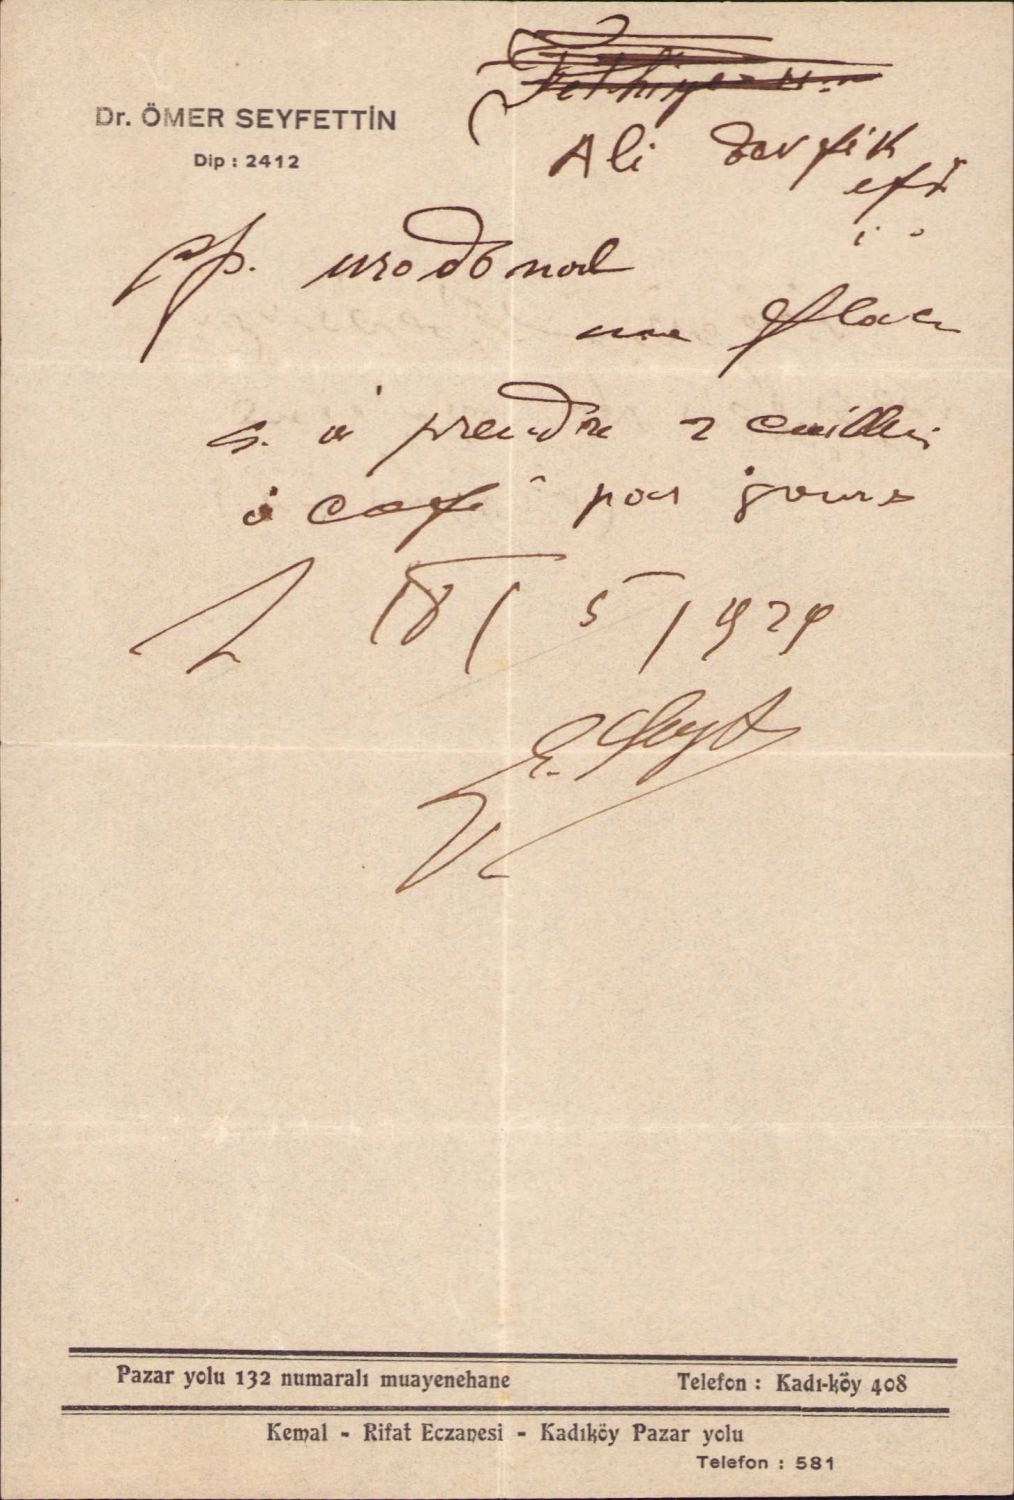 Dr. ÖMER SEYFETTİN
Dip : 2412
Ali Tevfik
ef.
Rp. urodonal
une flacn
S. à prendre 2 cuiller
à café par jours
18 / 5 / 1929
Pazar yolu 132 numaralı muayenehane
Telefon : Kadı-köy 408
Kemal - Rifat Eczanesi - Kadıköy Pazar yolu
Telefon : 581